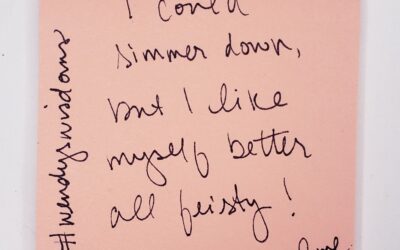 I could
simmer down,
but I like
myself better
all feisty!
#wendyswisdoms